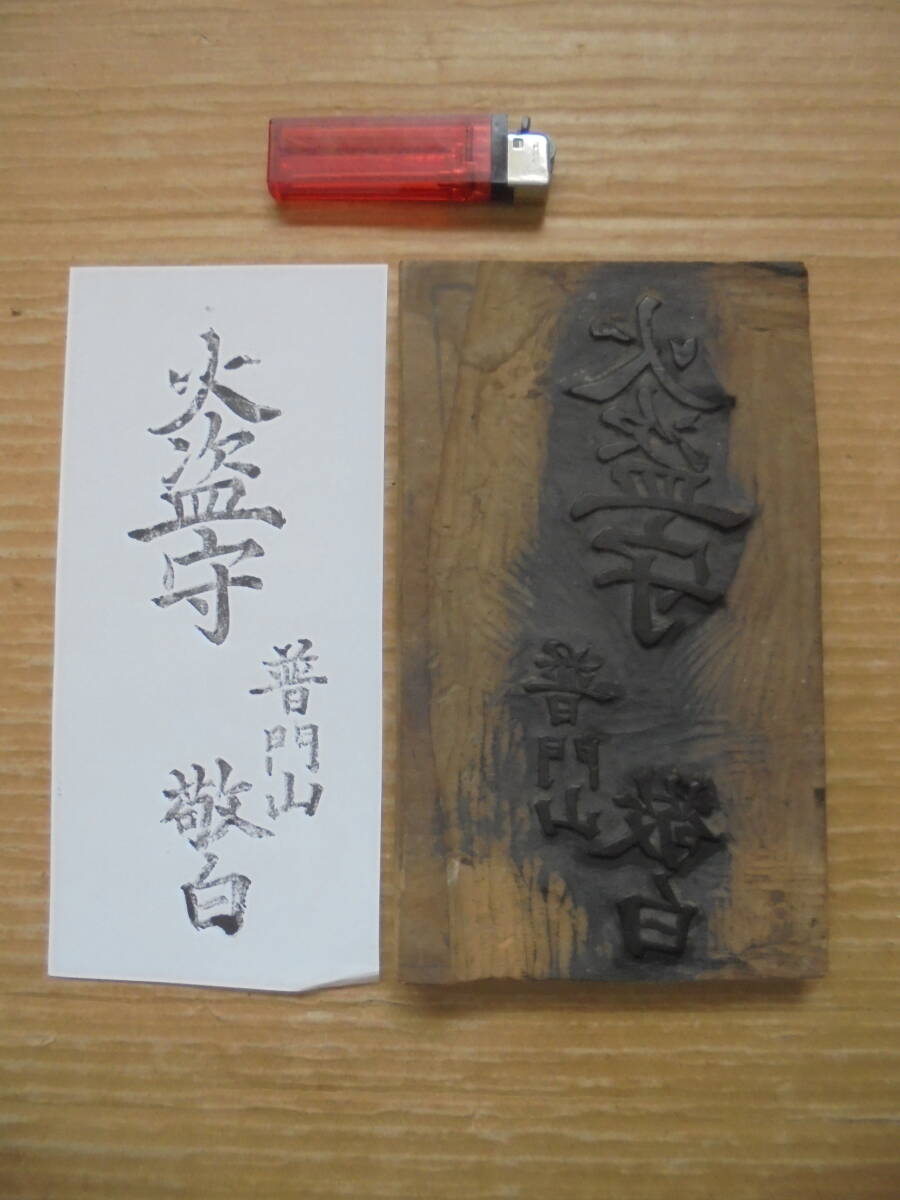 火盗守
普門山
敬白
火盗守
普門山
敬白